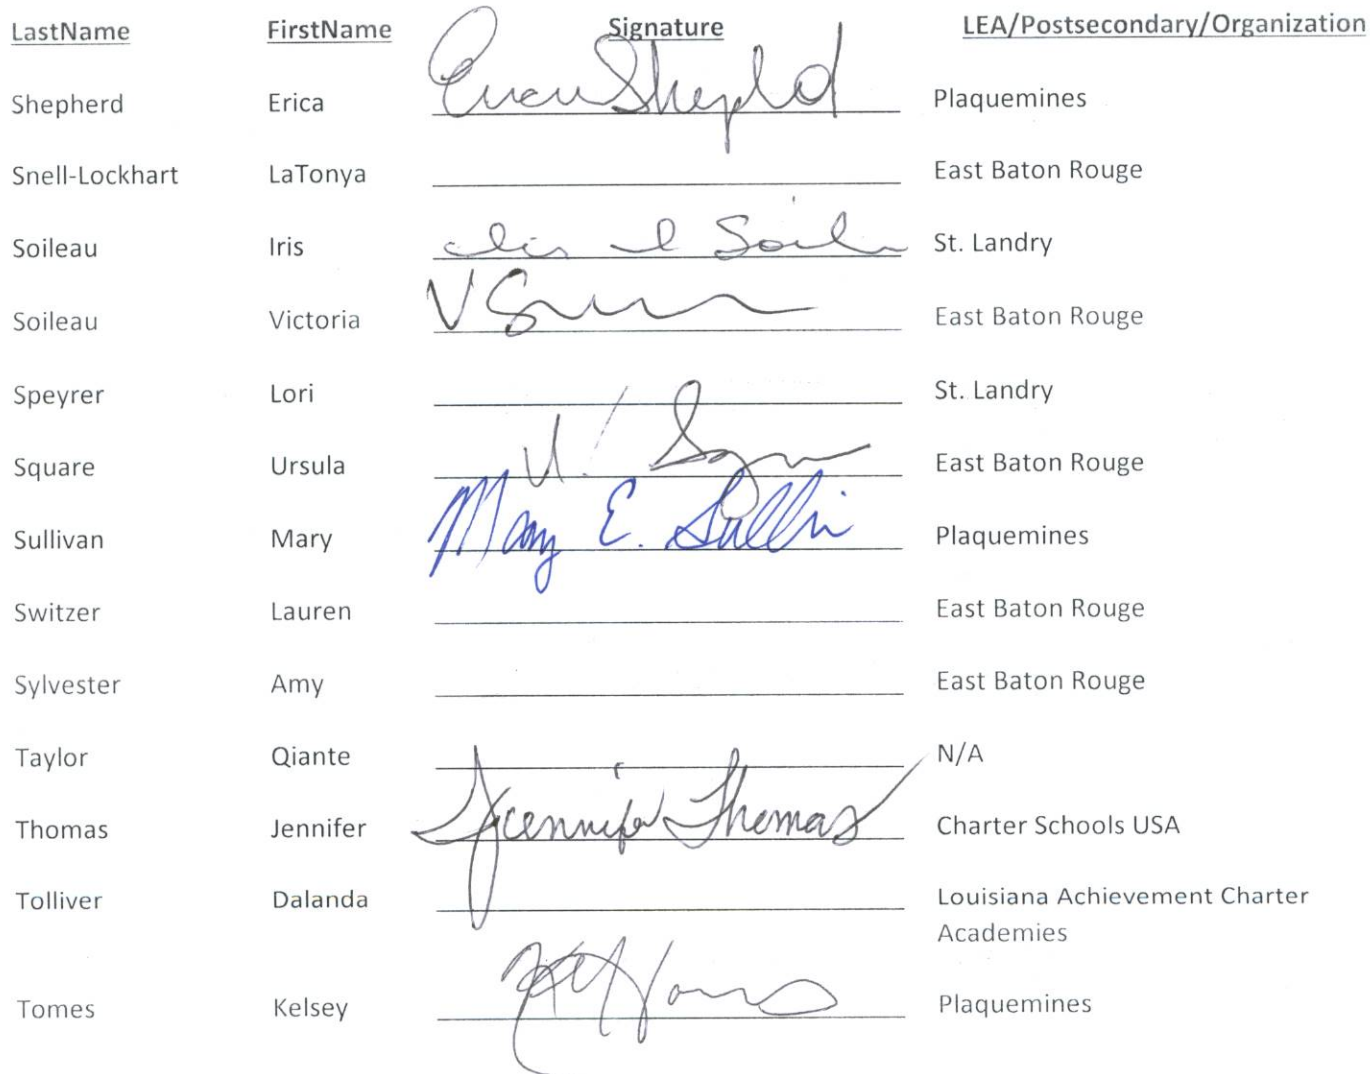 LastName FirstName Signature LEA/Postsecondary/Organization
Shepherd Erica Plaquemines
Snell-Lockhart LaTonya East Baton Rouge
Soileau Iris St. Landry
Soileau Victoria East Baton Rouge
Speyrer Lori St. Landry
Square Ursula U. East Baton Rouge
Sullivan Mary Mary E. Plaquemines
Switzer Lauren East Baton Rouge
Sylvester Amy East Baton Rouge
Taylor Qiante N/A
Thomas Jennifer Jennifer Thomas Charter Schools USA
Tolliver Dalanda Louisiana Achievement Charter
Academies
Tomes Kelsey Plaquemines